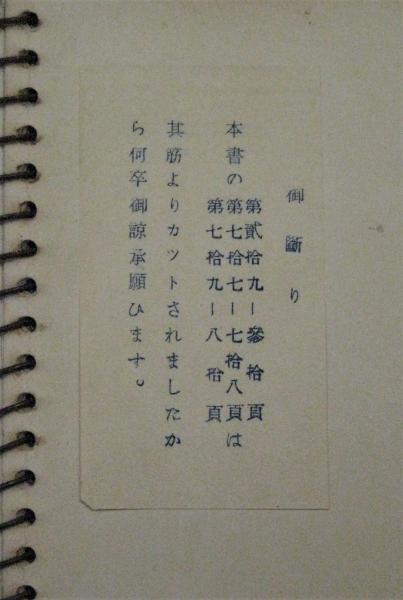 御斷り
第貳拾九ー參拾頁
本書の第七拾七ー七拾八頁は
第七拾九ー八拾頁
其筋よりカツトされましたか
ら何卒御諒承願ひます。